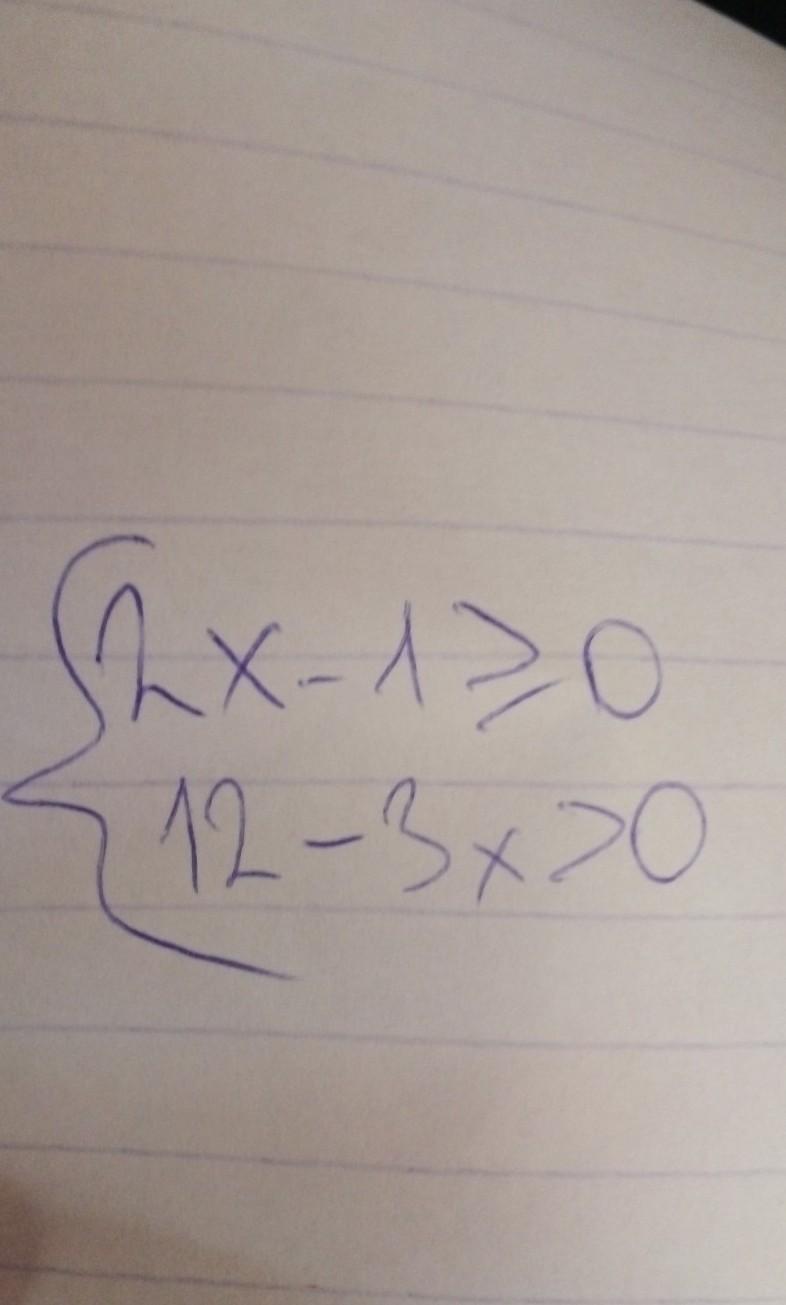 2x-1≥0
12-3x>0